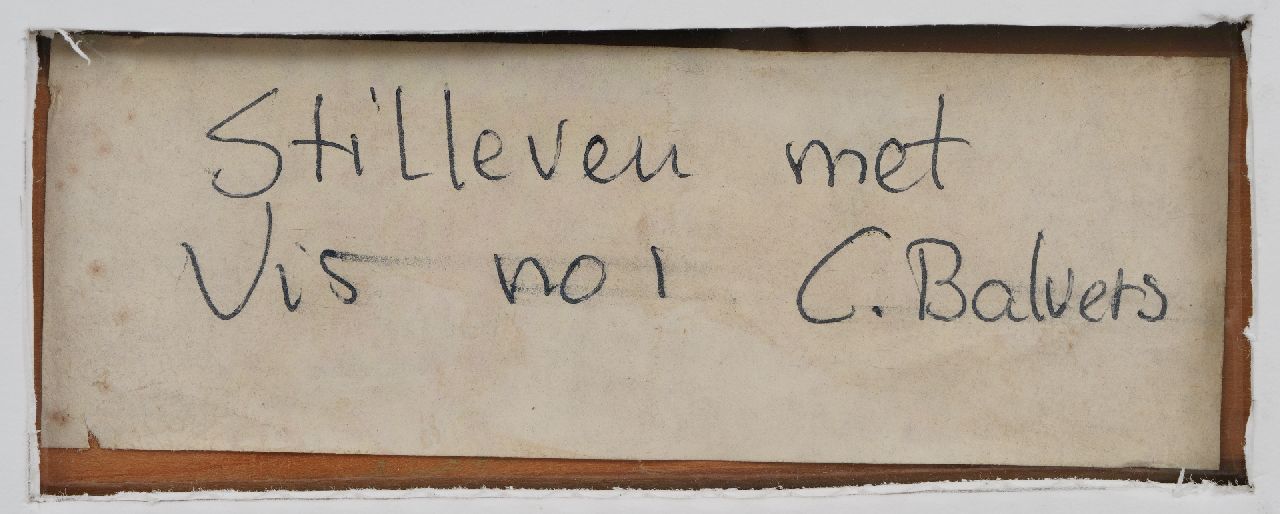 Stilleven met
Vis no 1 C. Balvers